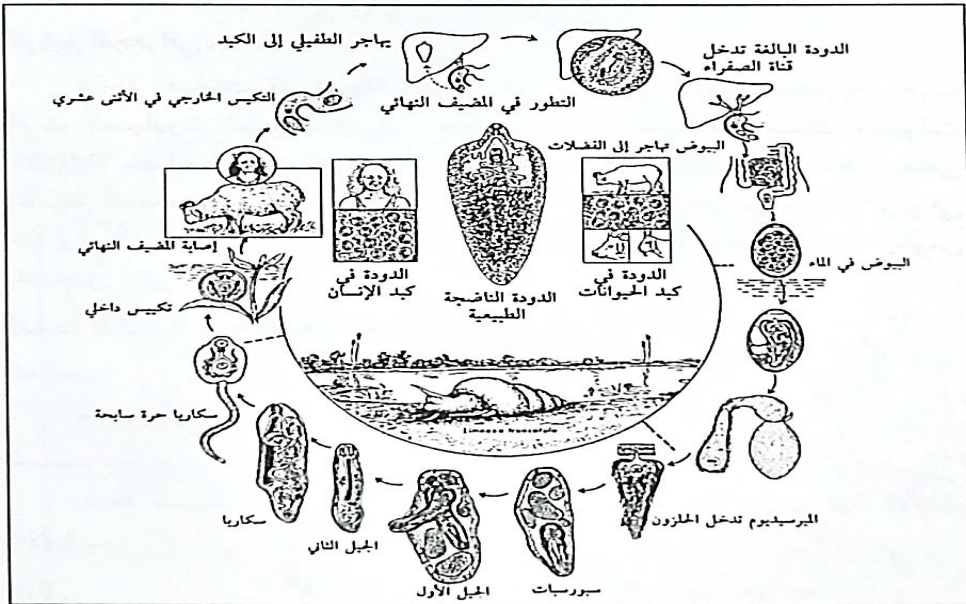 يهاجر الطفيلي إلى الكبد
الدودة البالغة تدخل
قناة الصفراء
التطور في المضيف النهائي
التكيس الخارجي في الأثنى عشري
البيوض تهاجر إلى الفضلات
إصابة المضيف النهائي
الدودة في
كبد الإنسان
الدودة الناضجة
الطبيعية
الدودة في
كبد الحيوانات
البيوض في الماء
تكييس داخلي
سكاريا حرة سابحة
سكاريا
الجيل الثاني
الجيل الأول
سبورسيات
الميرسيديوم تدخل الحلزون